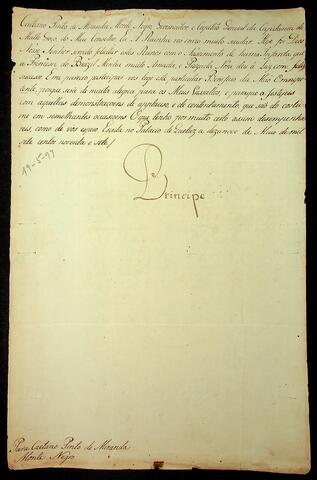 Caetano Pinto de Miranda Monte Negro Governador e Capitão General da Capitania de
Matto Groço, do Meu Conselho. Eu A Rainha vos envio muito saudar. Hoje foi Deos
Nosso Senhor servido felicitar estes Reinos com o Nascimento de huma Infanta, que
a Princeza do Brazil Minha muito Amada, e Prezada Nora deu á luz com feliz
successo. E me pareceo participar vos logo este particular Beneficio da Mão Omnipo
tente, porque será de muita alegria para os Meus Vassallos, e paraque o festejeis
com aquellas demonstraçoens de applauso, e de contentamento, que são do costu
me em semelhantes occasioens. O que tenho por muito certo assim desempenha
reis, como de vós espero. Escrita no Palacio de Queluz a dezanove de Maio de mil
sete centos noventa e sete/
19-5-97
Principe
Para Caetano Pinto de Miranda
Monte Negro